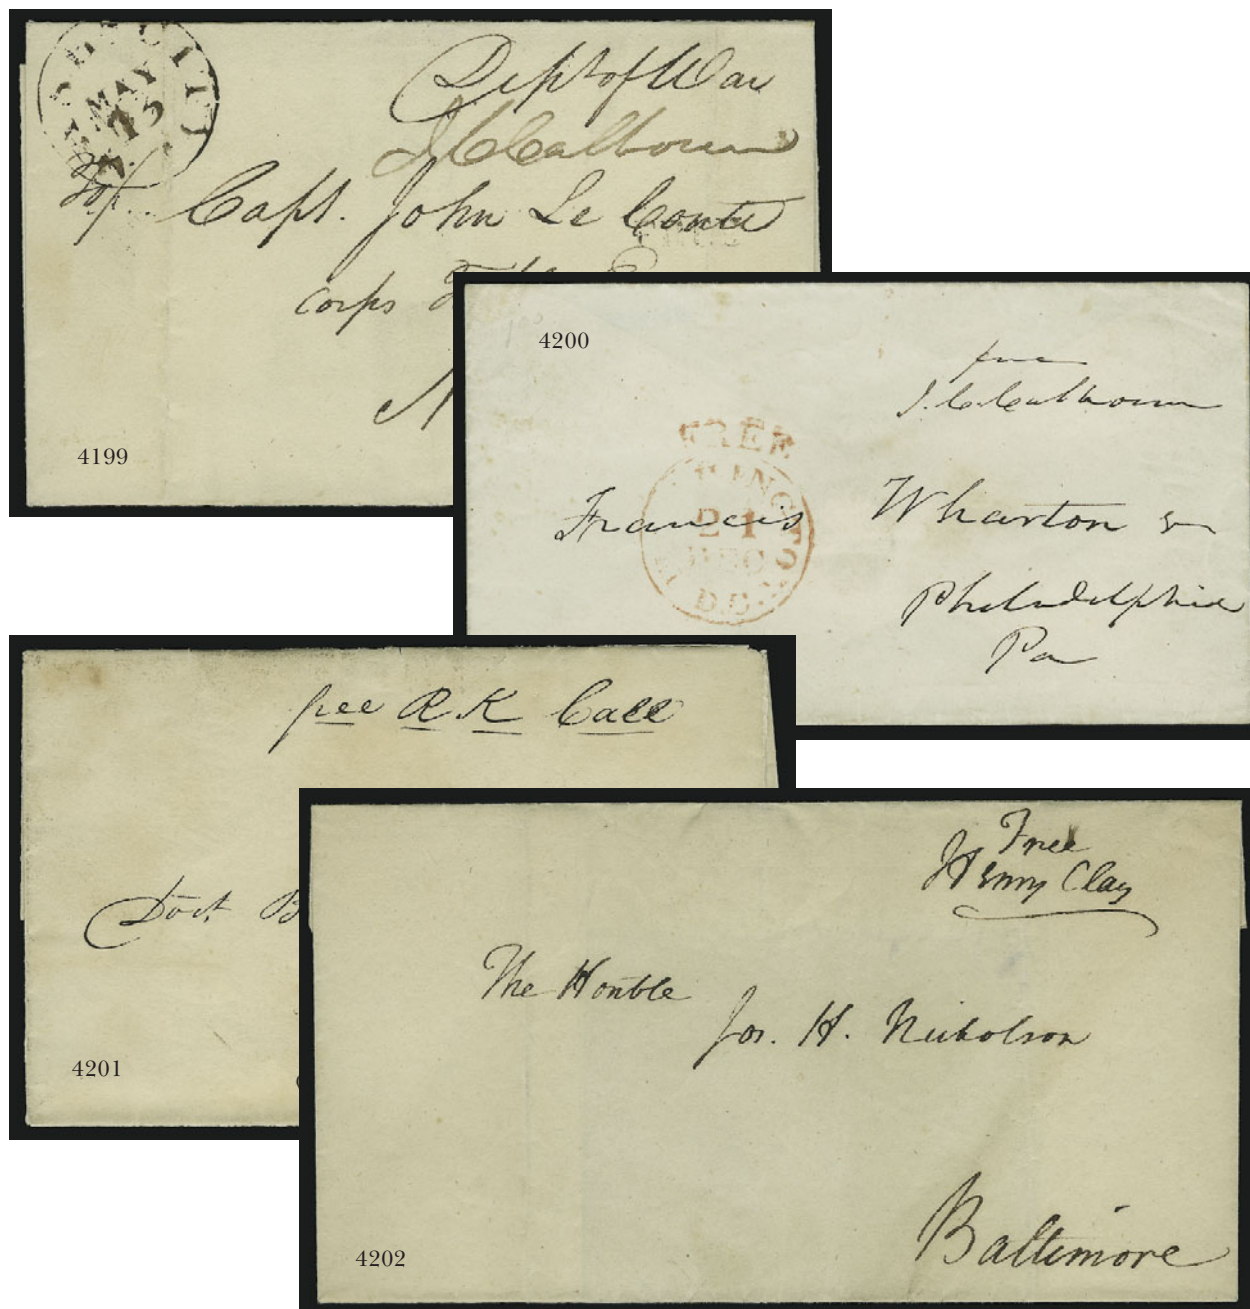 CITY
MAY
15
Dept of War
J C Calhoun
Capt. John Le Conte
corps
N
4199
4200
free
J. C. Calhoun
FREE
HINGTON
21
DEC
D.C.
Francis Wharton
Philadelphia
Pa
free R K Call
Doct B
4201
Free
Henry Clay
The Honble
Jos. H. Nicholson
Baltimore
4202